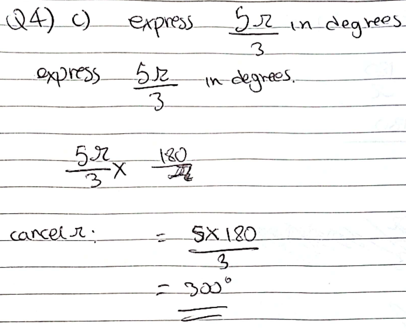 Q4) c) express 5π/3 in degrees
express 5π/3 in degrees.
5π/3 × 180/π
cancel π: = 5×180/3
= 300°